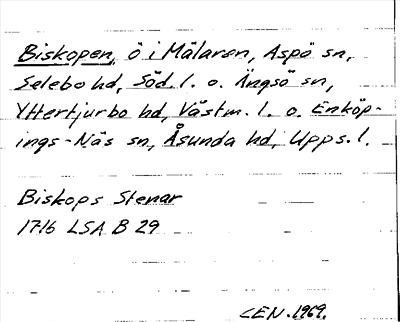 Biskopen, ö i Mälaren, Aspö sn,
Selebo hd, Söd. l. o. Ängsö sn,
Yttertjurbo hd, Västm. l. o. Enköp-
ings-Näs sn, Åsunda hd, Upps. l.
Biskops Stenar
1716 LSA B 29
CEN. 1969.